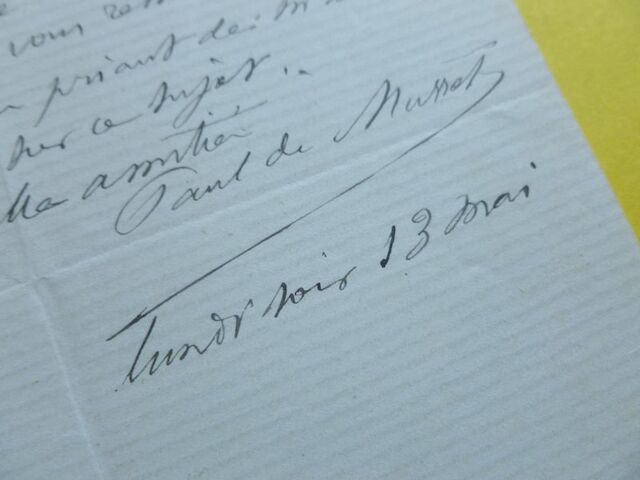 vous
priant de
sur ce sujet.
Paul de Musset
lundi soir 13 mai